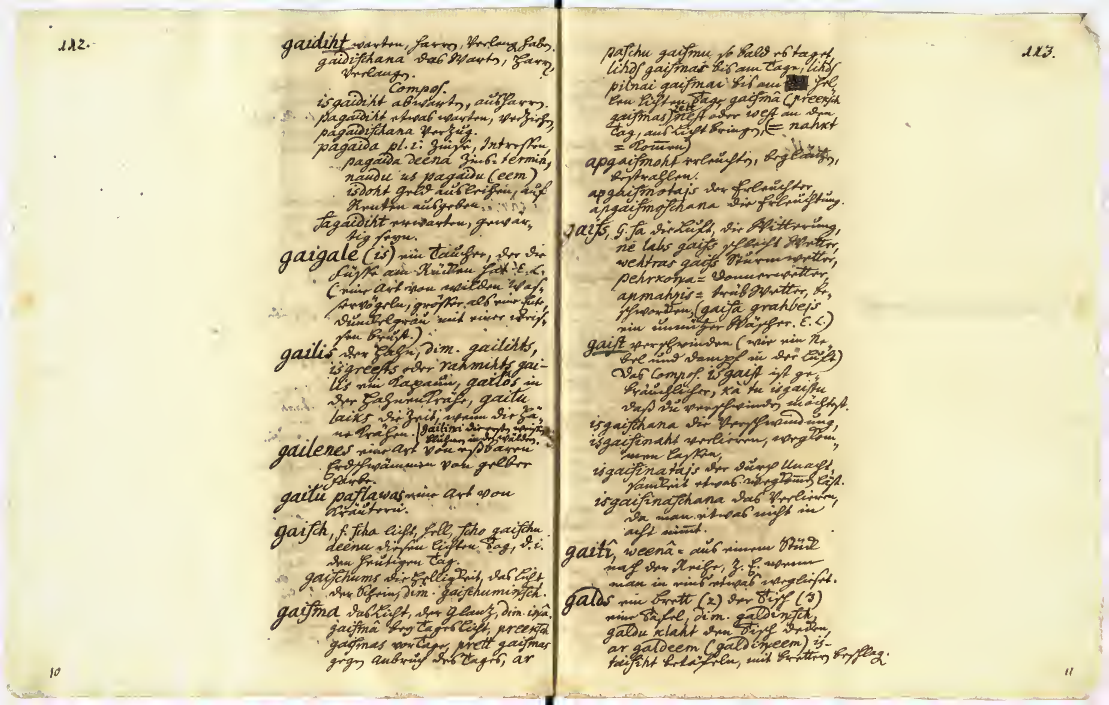 112.
gaidiht warten, harren, Verlangen haben.
gaidischana das Warten, Harren,
Verlangen.
Compos.
isgaidiht abwarten, ausharren.
pagaidiht etwas warten, verziehen,
pagaidischana Verzug.
pagaida pl. i: Zinse, Intressen,
pagaida deena Zins-termin,
naudu us pagaidu (eem)
isdoht Geld ausleihen, auf
Renten ausgeben.
sagaidiht erwarten, gewär-
tig seyn.
gaigale (is) ein Taucher, der die
Füsse am Rücken hat. E. L.
(eine Art von wilden Was-
servögeln, grösser als eine Ente,
dunkelgrau mit einer weis-
sen Brust.)
gailis der Hahn, dim. gailihts,
isgreests oder rahmihts gai-
lis ein Kapaun, gailos in
der Hahnen Krähe, gailu
laiks die Zeit, wenn die Hä-
ne krähen. gailini die ersten
Blumen in den Wäldern.
gailenes eine Art von essbaren
Erdschwämmen von gelber
Farbe.
gailu paslawas eine Art von
Kräutern.
gaisch, f. scha licht, hell, scho gaischu
deenu diesen lichten Tag, d. i.
den heutigen Tag.
gaischums die Helligkeit, das Licht
der Schein, dim. gaischuminsch.
gaisma das Licht, der Glanz, dim.
gaismâ bey Tages Licht, preeksch
gaismas vor Tage, prett gaismas
gegen Anbruch des Tages, ar
10
113.
paschu gaismu so bald es taget,
lihds gaismai bis am Tage, lihds
pilnai gaismai bis am hel-
len lichten Tage gaismâ (preeksch
gaismas) nest oder west an den
Tag, ans Licht bringen, (= nahkt
= kommen)
apgaismoht erleuchten, beglänzen,
bestrahlen.
apgaismotajs der Erleuchter
apgaismoschana die Erleuchtung.
gaiss, G. sa die Luft, die Witterung,
ne labs gaiss schlecht Wetter,
wehtras gaiss Sturmwetter,
pehrkona = Donnerwetter,
apmahzis = trüb Wetter, be-
schworken, (gaisa grahbejs
ein unnützer Wäscher. E. L.)
gaist verschwinden (wie ein Ne-
bel und Dampf in der Luft)
Das Compos. isgaist ist ge-
bräuchlicher, ka tu isgaistu
dass du verschwinden möchtest.
isgaischana die Verschwindung,
isgaisinaht verlieren, wegkom-
men lassen,
isgaisinatajs der durch Unacht-
samkeit etwas wegkommen lässt.
isgaisinaschana das Verlieren,
da man etwas nicht in
acht nimt.
gaitî, weena = aus einem Stück
nach der Reihe, Z. E. wenn
man in eins etwas wegliefet.
galds ein Brett (2) der Tisch (3)
eine Tafel, dim. galdinsch,
galdu klaht den Tisch decken,
ar galdeem (galdineem) is-
taisiht betäfeln, mit Brettern beschlag.
11